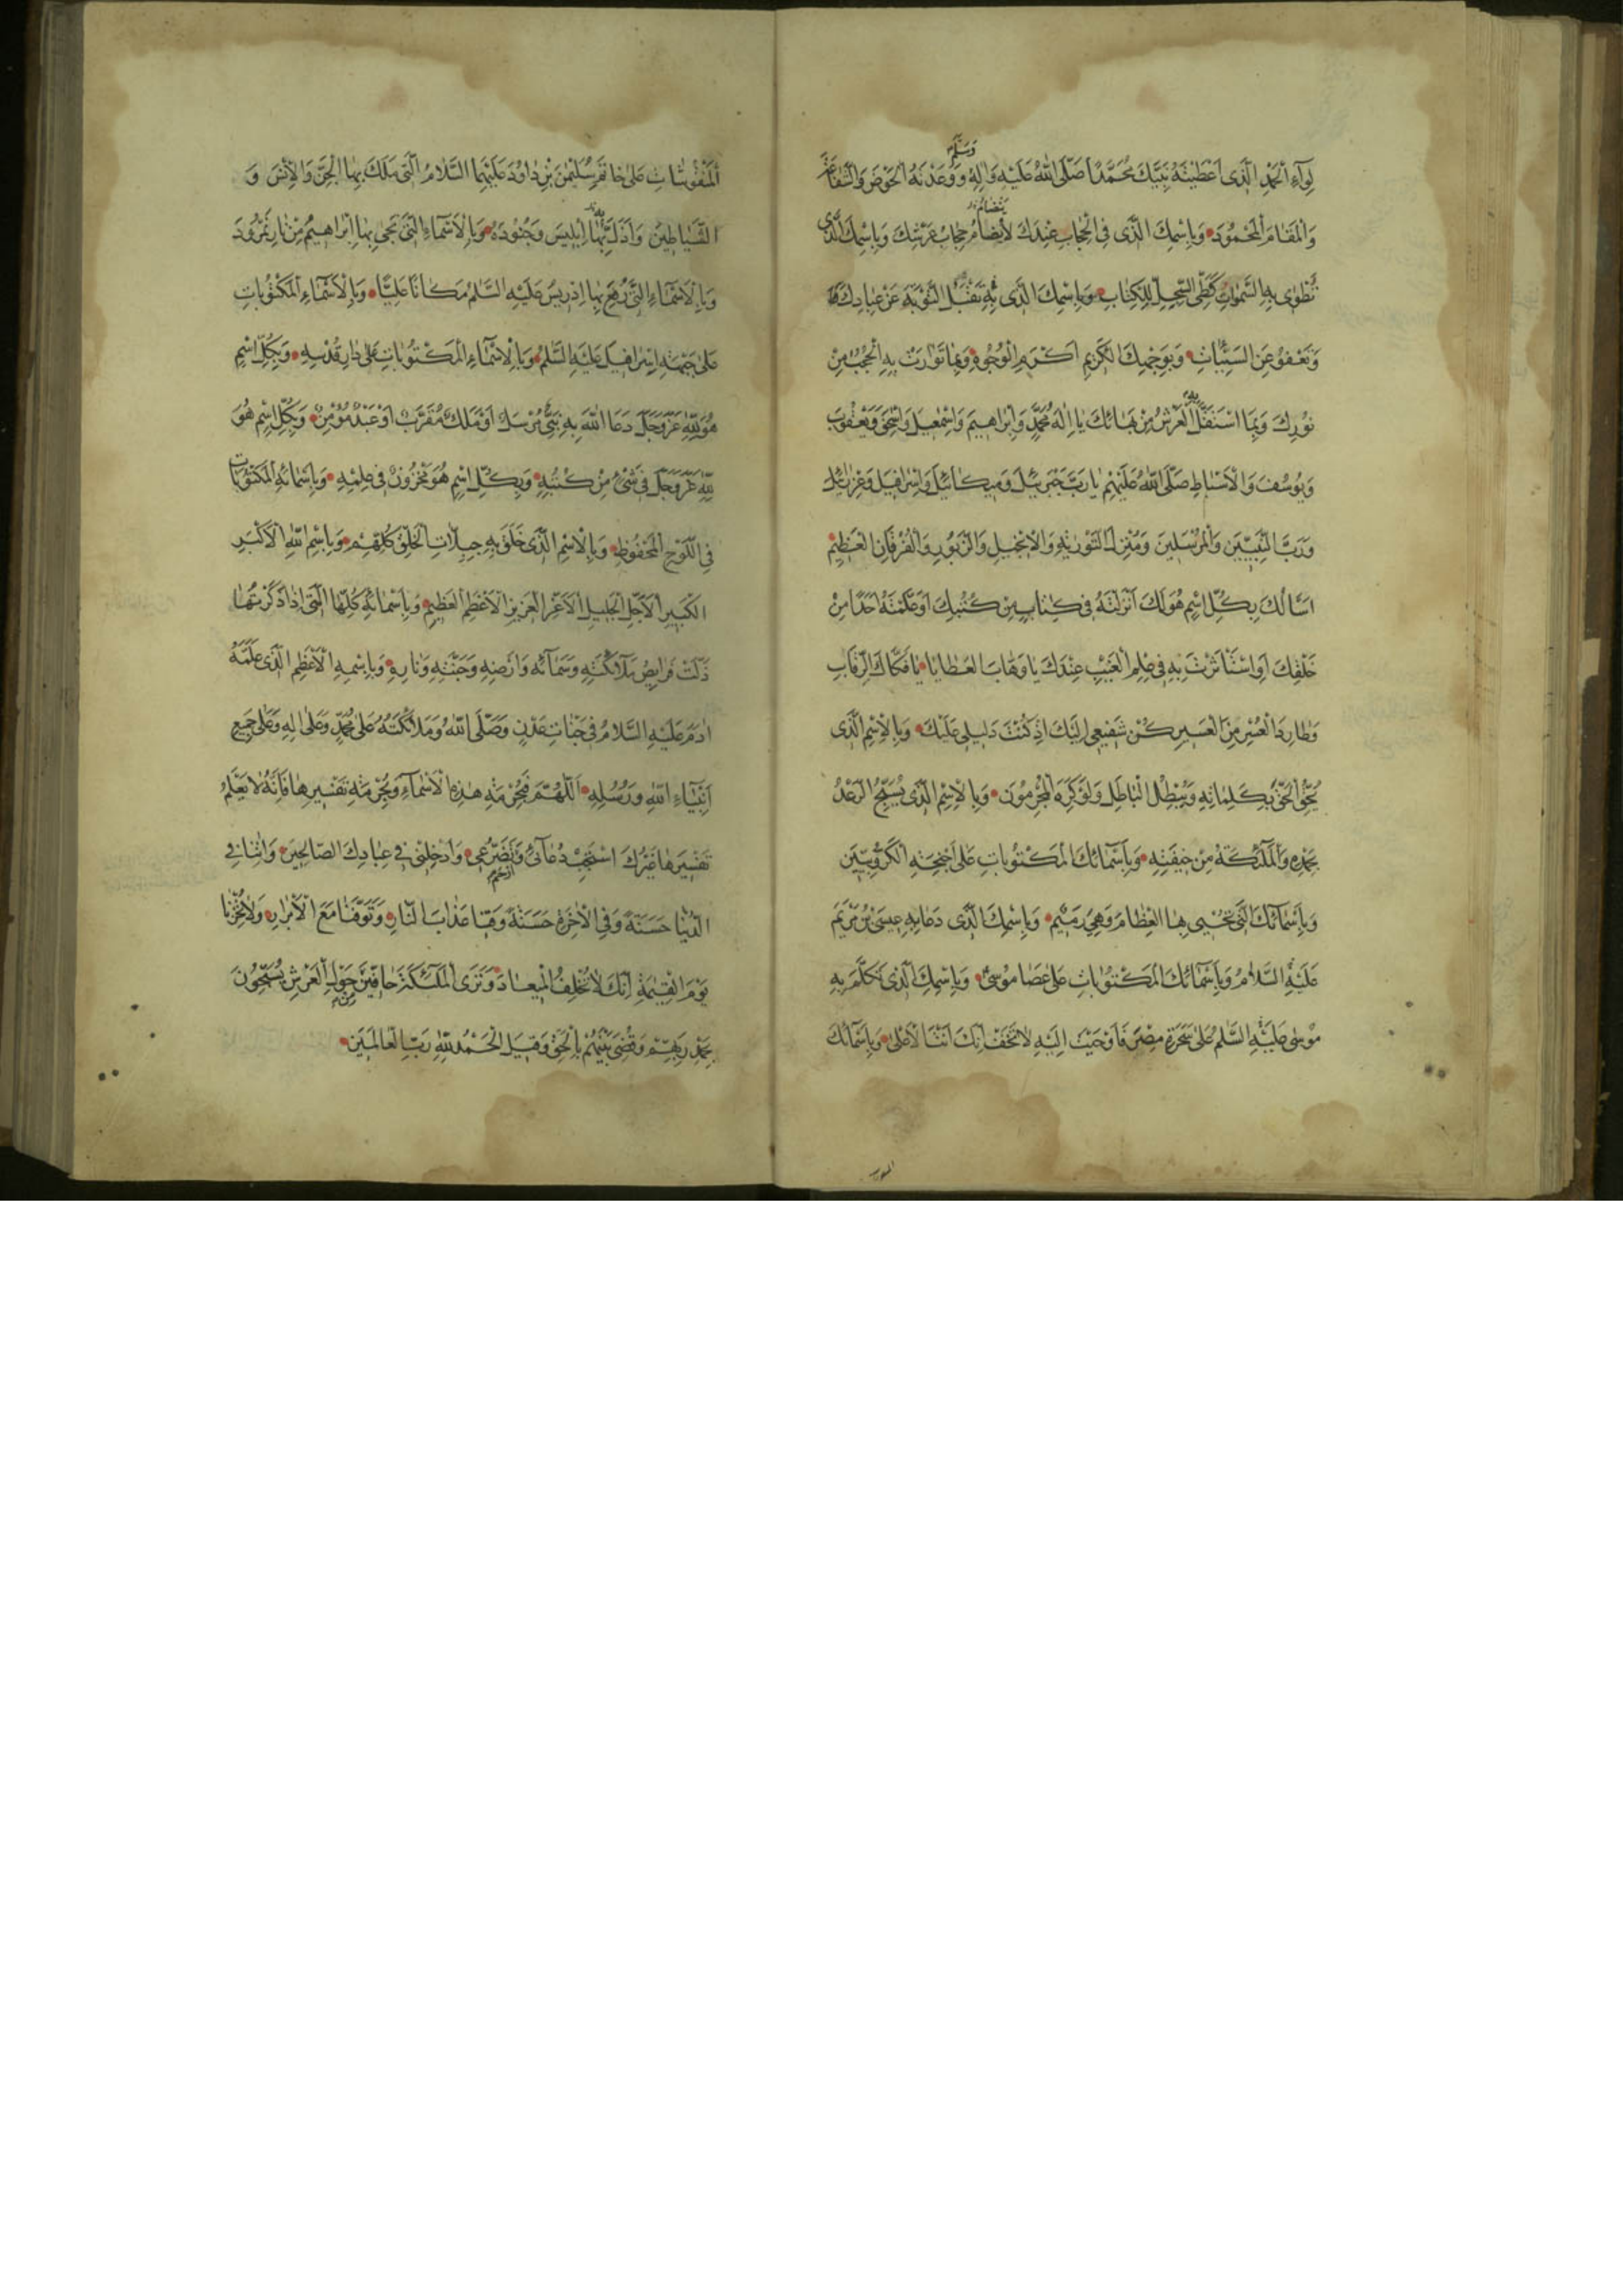 وسلم
لِوَآءِ الْحَمْدِ الَّذى اَعْطَيْتَهُ نَبِيَّكَ مُحَمَّدًا صَلَّى اللّٰهُ عَلَيْهِ وَاٰلِهٖ وَوَعَدْتَهُ الْحَوْضَ وَالشَّفَاعَةَ
وَالْمَقَامَ الْمَحْمُودَ وَبِاِسْمِكَ الَّذى فِى الْحِجَابِ عِنْدَكَ لَايُضَامُ حِجَابُ عَرْشِكَ وَبِاِسْمِكَ الَّذى
تُطْوٰى بِهِ السَّمٰوَاتُ كَطَىِّ السِّجِلِّ لِلْكِتَابِ وَبِاِسْمِكَ الَّذى بِهٖ تَقْبَلُ التَّوْبَةَ عَنْ عِبَادِكَ
وَتَعْفُو عَنِ السَّيِّئَاتِ وَبِوَجْهِكَ الْكَرِيمِ اَكْرَمِ الْوُجُوهِ وَبِمَا تَوَارَتْ بِهِ الْحُجُبُ مِنْ
نُورِكَ وَبِمَا اسْتَقَلَّ بِهِ الْعَرْشُ مِنْ بَهَائِكَ يَا اِلٰهَ مُحَمَّدٍ وَاِبْرَاهِيمَ وَاِسْمٰعِيلَ وَاِسْحٰقَ وَيَعْقُوبَ
وَيُوسُفَ وَالْاَسْبَاطِ صَلَّى اللّٰهُ عَلَيْهِمْ يَا رَبَّ جَبْرَئِيلَ وَمِيكَائِيلَ وَاِسْرَافِيلَ وَعِزْرَائِيلَ
وَرَبَّ النَّبِيِّينَ وَالْمُرْسَلِينَ وَمُنْزِلَ التَّوْرٰيةِ وَالْاِنْجِيلِ وَالزَّبُورِ وَالْفُرْقَانِ الْعَظِيمِ
اَسْاَلُكَ بِكُلِّ اسْمٍ هُوَ لَكَ اَنْزَلْتَهُ فِى كِتَابٍ مِنْ كُتُبِكَ اَوْ عَلَّمْتَهُ اَحَدًا مِنْ
خَلْقِكَ اَوِ اسْتَأْثَرْتَ بِهِ فِى عِلْمِ الْغَيْبِ عِنْدَكَ يَا وَهَّابَ الْعَطَايَا يَا فَكَّاكَ الرِّقَابِ
وَطَارِدَ الْعُسْرِ مِنَ الْعَسِيرِ كُنْ شَفِيعِى اِلَيْكَ اِذْ كُنْتَ دَلِيلِى عَلَيْكَ وَبِالْاِسْمِ الَّذى
يُحِقُّ الْحَقَّ بِكَلِمَاتِهِ وَيُبْطِلُ الْبَاطِلَ وَلَوْ كَرِهَ الْمُجْرِمُونَ وَبِالْاِسْمِ الَّذى يُسَبِّحُ الرَّعْدُ
بِحَمْدِهِ وَالْمَلٰئِكَةُ مِنْ خِيفَتِهِ وَبِاَسْمَائِكَ الْمَكْتُوبَاتِ عَلٰى اَجْنِحَةِ الْكَرُّوبِيِّينَ
وَبِاَسْمَائِكَ الَّتى تُحْيِى بِهَا الْعِظَامَ وَهِىَ رَمِيمٌ وَبِاِسْمِكَ الَّذى دَعَا بِهِ عِيسَى بْنُ مَرْيَمَ
عَلَيْهِ السَّلَامُ وَبِاَسْمَائِكَ الْمَكْتُوبَاتِ عَلٰى عَصَا مُوسٰى وَبِاِسْمِكَ الَّذى تَكَلَّمَ بِهِ
مُوسٰى عَلَيْهِ السَّلٰمُ عَلٰى سَحَرَةِ مِصْرَ فَاَوْحَيْتَ اِلَيْهِ لَا تَخَفْ اِنَّكَ اَنْتَ الْاَعْلٰى وَبِاَسْمَائِكَ
الْمَنْقُوشَاتِ عَلٰى خَاتَمِ سُلَيْمٰنَ بْنِ دَاوُدَ عَلَيْهِمَا السَّلَامُ الَّتى مَلَكَ بِهَا الْجِنَّ وَالْاِنْسَ وَ
الشَّيَاطِينَ وَاَذَلَّ بِهَا اِبْلِيسَ وَجُنُودَهُ وَبِالْاَسْمَاءِ الَّتى نَجٰى بِهَا اِبْرَاهِيمُ مِنْ نَارِ نَمْرُودَ
وَبِالْاَسْمَاءِ الَّتى رُفِعَ بِهَا اِدْرِيسُ عَلَيْهِ السَّلٰمُ مَكَانًا عَلِيًّا وَبِالْاَسْمَاءِ الْمَكْتُوبَاتِ
عَلٰى جَبْهَةِ اِسْرَافِيلَ عَلَيْهِ السَّلٰمُ وَبِالْاَسْمَاءِ الْمَكْتُوبَاتِ عَلٰى دَارِ قُدْسِهِ وَبِكُلِّ اسْمٍ
هُوَ لِلّٰهِ عَزَّ وَجَلَّ دَعَا اللّٰهَ بِهِ نَبِىٌّ مُرْسَلٌ اَوْ مَلَكٌ مُقَرَّبٌ اَوْ عَبْدٌ مُؤْمِنٌ وَبِكُلِّ اسْمٍ هُوَ
لِلّٰهِ عَزَّ وَجَلَّ فِى شَىْءٍ مِنْ كُتُبِهِ وَبِكُلِّ اسْمٍ هُوَ مَخْزُونٌ فِى عِلْمِهِ وَبِاَسْمَائِهِ الْمَكْتُوبَاتِ
فِى اللَّوْحِ الْمَحْفُوظِ وَبِالْاِسْمِ الَّذى خَلَقَ بِهِ جِبِلَّاتِ الْخَلْقِ كُلِّهِمْ وَبِاِسْمِ اللّٰهِ الْاَكْبَرِ
الْكَبِيرِ الْاَجَلِّ الْجَلِيلِ الْاَعَزِّ الْعَزِيزِ الْاَعْظَمِ الْعَظِيمِ وَبِاَسْمَائِهِ كُلِّهَا الَّتى اِذَا ذَكَرْتَهَا
ذَلَّتْ فَرَائِصُ مَلَآئِكَتِهِ وَسَمَآئِهِ وَاَرْضِهِ وَجَنَّتِهِ وَنَارِهِ وَبِاِسْمِهِ الْاَعْظَمِ الَّذى عَلَّمَهُ
اٰدَمَ عَلَيْهِ السَّلَامُ فِى جَنَّاتِ عَدْنٍ وَصَلَّى اللّٰهُ وَمَلَائِكَتُهُ عَلٰى مُحَمَّدٍ وَعَلٰى اٰلِهِ وَعَلٰى جَمِيعِ
اَنْبِيَاءِ اللّٰهِ وَرُسُلِهِ اَللّٰهُمَّ فَبِحُرْمَةِ هٰذِهِ الْاَسْمَآءِ وَبِحُرْمَةِ تَفْسِيرِهَا فَاِنَّهُ لَا يَعْلَمُ
تَفْسِيرَهَا غَيْرُكَ اسْتَجِبْ دُعَآئِى وَتَضَرُّعِى وَاَدْخِلْنِى فِى عِبَادِكَ الصَّالِحِينَ وَاٰتِنَا فِى
الدُّنْيَا حَسَنَةً وَفِى الْاٰخِرَةِ حَسَنَةً وَقِنَا عَذَابَ النَّارِ وَتَوَفَّنَا مَعَ الْاَبْرَارِ وَلَا تُخْزِنَا
يَوْمَ الْقِيٰمَةِ اِنَّكَ لَا تُخْلِفُ الْمِيعَادَ وَتَرَى الْمَلٰئِكَةَ حَافِّينَ مِنْ حَوْلِ الْعَرْشِ يُسَبِّحُونَ
بِحَمْدِ رَبِّهِمْ وَقُضِىَ بَيْنَهُمْ بِالْحَقِّ وَقِيلَ الْحَمْدُ لِلّٰهِ رَبِّ الْعَالَمِينَ